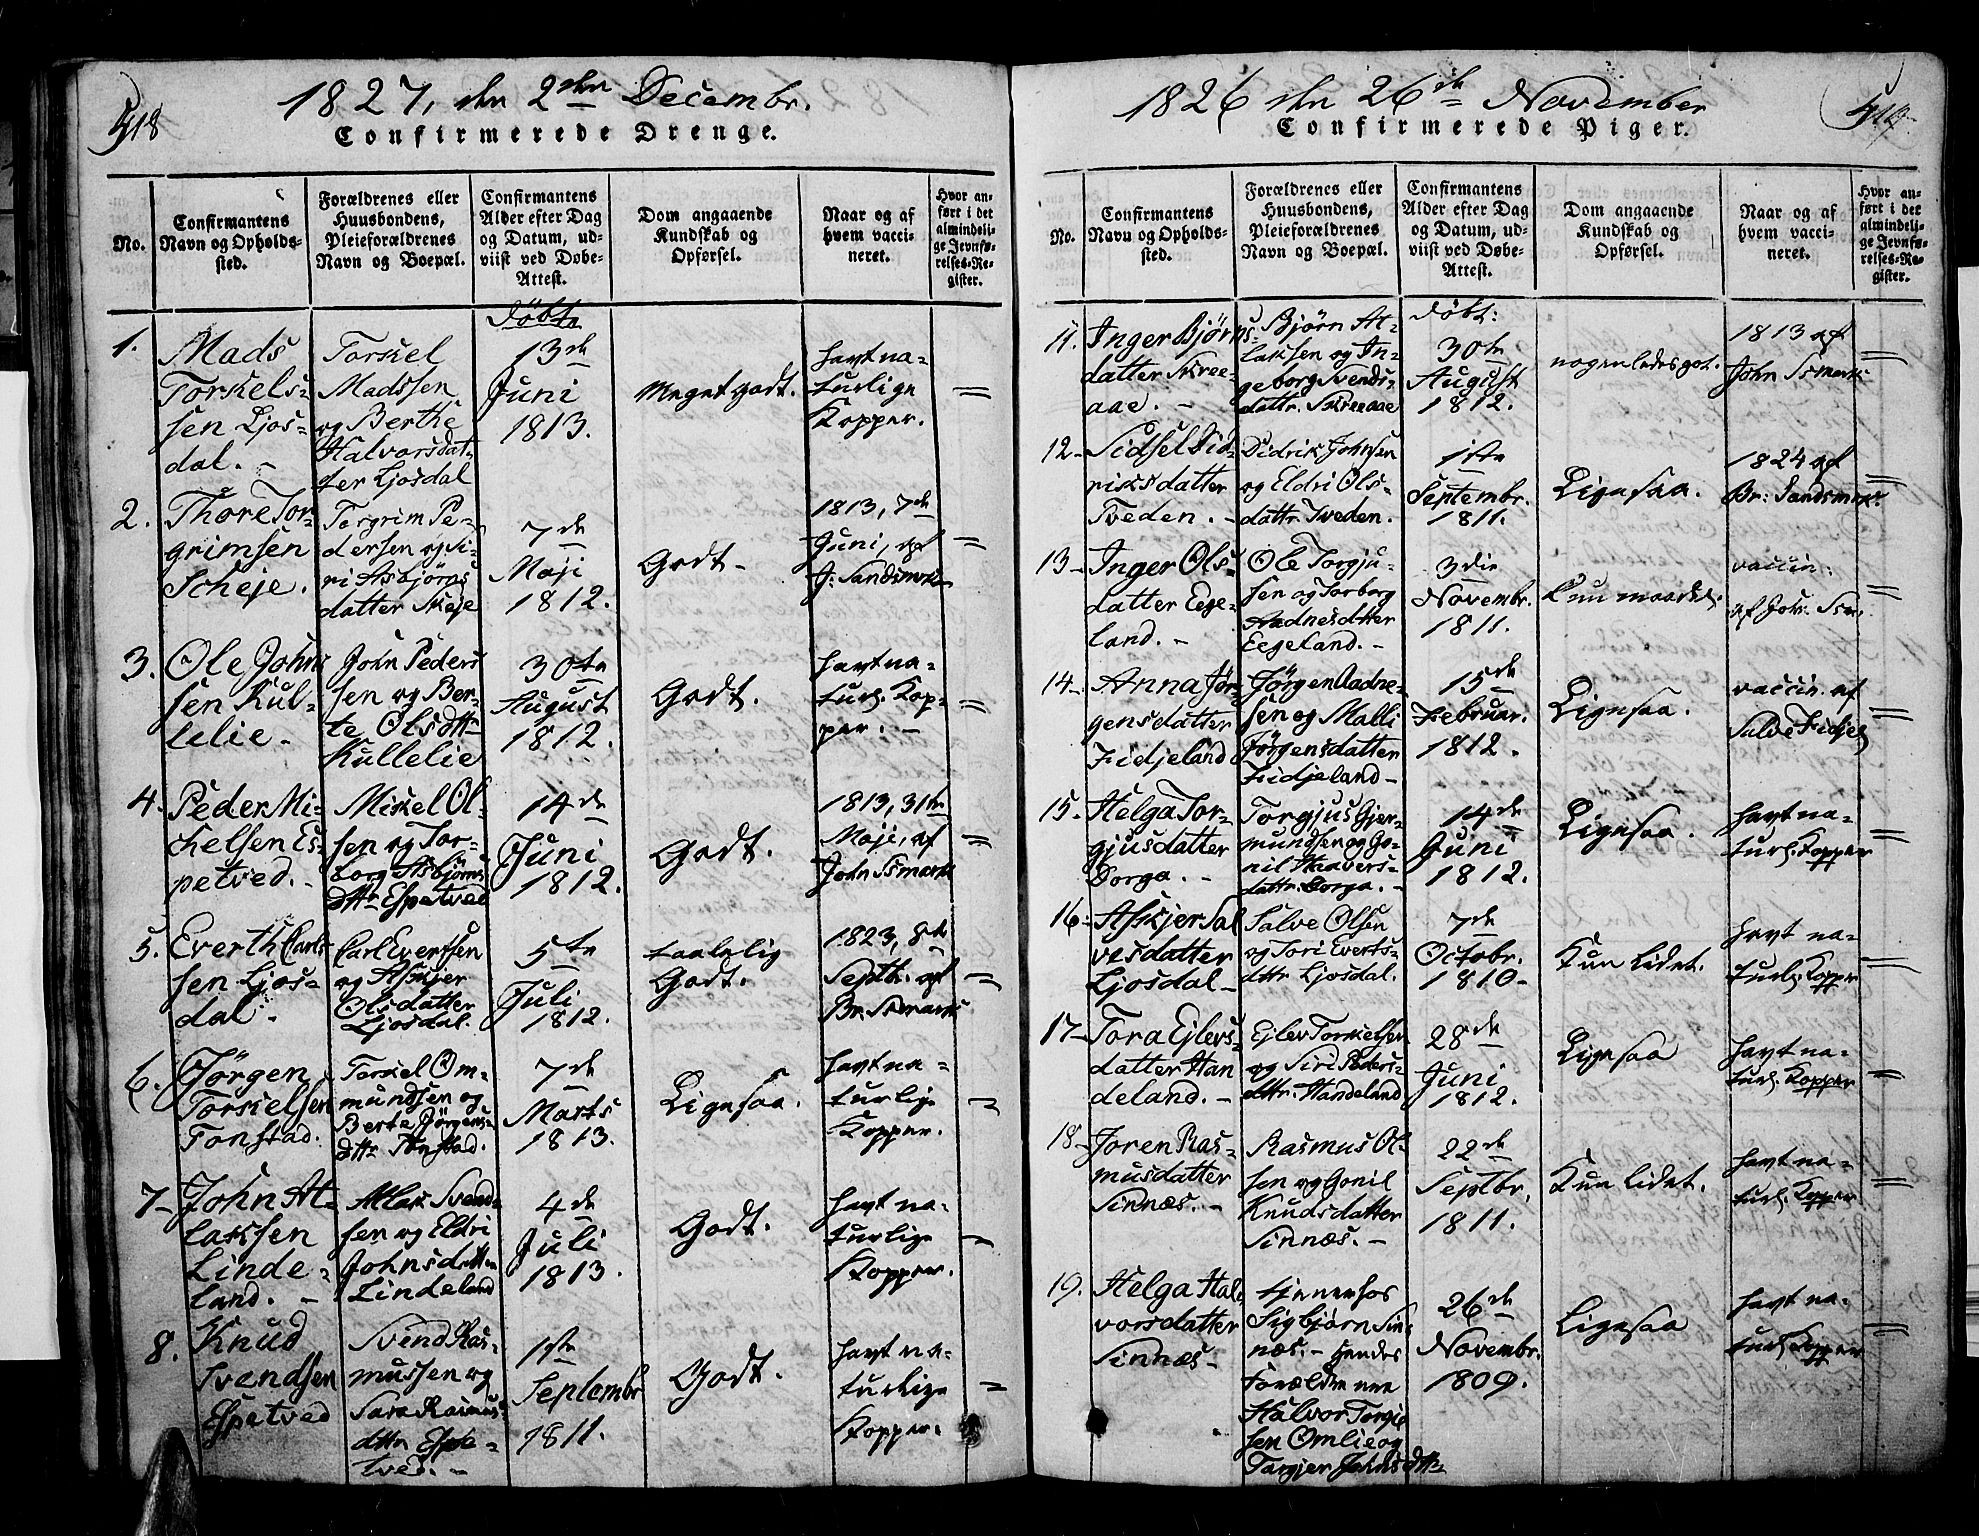 418
1827, den 2den Decembr.
Confirmerede Drenge.
No.
Confirmantens
Navn og Opholds-
sted.
Forældrenes eller
Huusbondens,
Pleieforældrenes
Navn og Boepæl.
Confirmantens
Alder efter Dag
og Datum, ud-
viist ved Døbe-
Attest.
Dom angaaende
Kundskab og
Opførsel.
Naar og af
hvem vacci-
neret.
Hvor an-
ført i det
almindeli-
ge Jevnfø-
relses-Re-
gister.
døbt
1.
Mads
Torkels-
sen Ljos-
dal. -
Torkel
Madssen
og Berthe
Halvorsdat-
ter Ljosdal
13de
Juni
1813.
Meget godt.
havt na-
turlige
Kopper.
=
2.
Thore Tor-
grimsen
Scheje.
Torgrim Pe-
dersen og Si-
ri Asbjørns
datter Skeje
7de
Maji
1812.
Godt -
1813, 7de
Juni, af
J. Sandsmark
=
3.
Ole Johns
sen Kul-
lelie -
John Peders
sen og Ber-
te Olsdttr
Kullelie
30te
August
1812.
Godt.
havt na-
turl. Kop-
per. -
=
4.
Peder Mi-
chelsen Es-
petved. -
Mikel Ol-
sen og Tor-
borg Asbjørns
dttr Espetved
14de
Juni
1812.
Godt.
1813, 31te
Maji, af
John Smark
=
5.
Everth Carls
sen Ljos-
dal -
Carl Evertsen
og Askjer
Olsdatter
Ljosdal.
5te
Juli
1812.
taalelig
Godt.
1823, 8de
Septb. af
Br. Smark
=
6.
Jørgen
Torkelsen
Tonstad.
Torkel Om-
mundsen og
Berte Jørgens-
dttr Tonstad.
7de
Marts
1813.
Ligesaa.
havt na-
turlige
Kopper.
=
7-
John At-
laksen
Linde-
land. -
Atlak Svend-
sen og Eldri
Johnsdatter
Lindeland
4de
Juli
1813.
Godt.
havt na-
turlige
Kopper.
=
8.
Knud
Svendsen
Espetved
Svend Ras-
mussen og
Sara Rasmus-
dttr Espe-
tved. -
1ste
Septembr
1811.
Godt.
havt na-
turlige
Kopper.
=
419
1826 den 26de November
Confirmerede Piger.
No.
Confirmantens
Navn og Opholds-
sted.
Forældrenes eller
Huusbondens,
Pleieforældrenes
Navn og Boepæl.
Confirmantens
Alder efter Dag
og Datum, ud-
viist ved Døbe-
Attest.
Dom angaaende
Kundskab og
Opførsel.
Naar og af
hvem vacci-
neret.
Hvor an-
ført i det
almindeli-
ge Jevnfø-
relses-Re-
gister.
døbt:
11.
Inger Bjørns-
datter Skree-
aae. -
Bjørn At-
laksen og In-
geborg Svends-
dattr. Skreeaae
30te
August
1812.
nogenledes got.
1813 af
John Smark
=
12-
Sidsel Did-
riksdatter
Tveden. -
Didrik Johnsen
og Eldri Ols-
dattr. Tveden.
1ste
Septembr.
1811.
Ligesaa.
1824 af
Br: Sandsmark.
=
13-
Inger Ols-
datter Eege-
land. -
Ole Torgju-
sen og Torborg
Aadnesdatter
Eegeland. -
3die
Novembr.
1811.
Kun maadel.
vaccin.
af Joh. Smrk
=
14-
Anna Jør-
gensdatter
Fidjeland
Jørgen Aadne-
sen og Malli
Jørgensdatter
Fidjeland -
15de
Februar.
1812.
Ligesaa.
vaccin. af
Salve Fidjel
=
15.
Helga Tor-
gjusdatter
Dorga. -
Torgjus Gjer-
mundsen og Go-
nil Haavers-
dattr. Dorga. -
14de
Juni
1812.
Ligesaa.
havt na-
turl. Kopper
=
16.
Askjer Sal
vesdatter
Ljosdal -
Salve Olsen
og Tori Everts-
dttr Ljosdal.
7de
Octobr.
1810-
Kun lidet.
havt na-
turl. Kopper
=
17-
Tora Ejlers-
datter Han
deland. -
Ejlev Torkelsen
og Siri Peders-
dttr. Handeland
28de
Juni
1812.
Ligesaa
havt na-
turl. Kopper
=
18-
Joren Ras-
musdatter
Sinnæs. -
Rasmus Ol-
sen og Gonil
Knudsdatter
Sinnæs. -
22de
Septbr.
1811.
Kun lidet.
havt na-
turl. Kopper
=
19.
Helga Hal-
vorsdatter
Sinnæs -
tjener hos
Sigbjørn Sin-
næs. - hendes
Forældre ere
Halvor Torgie
sen Omlie og
Targjer Johnsdttr
26de
Novembr.
1809.
Ligesaa
havt na-
turl. Kopper
=